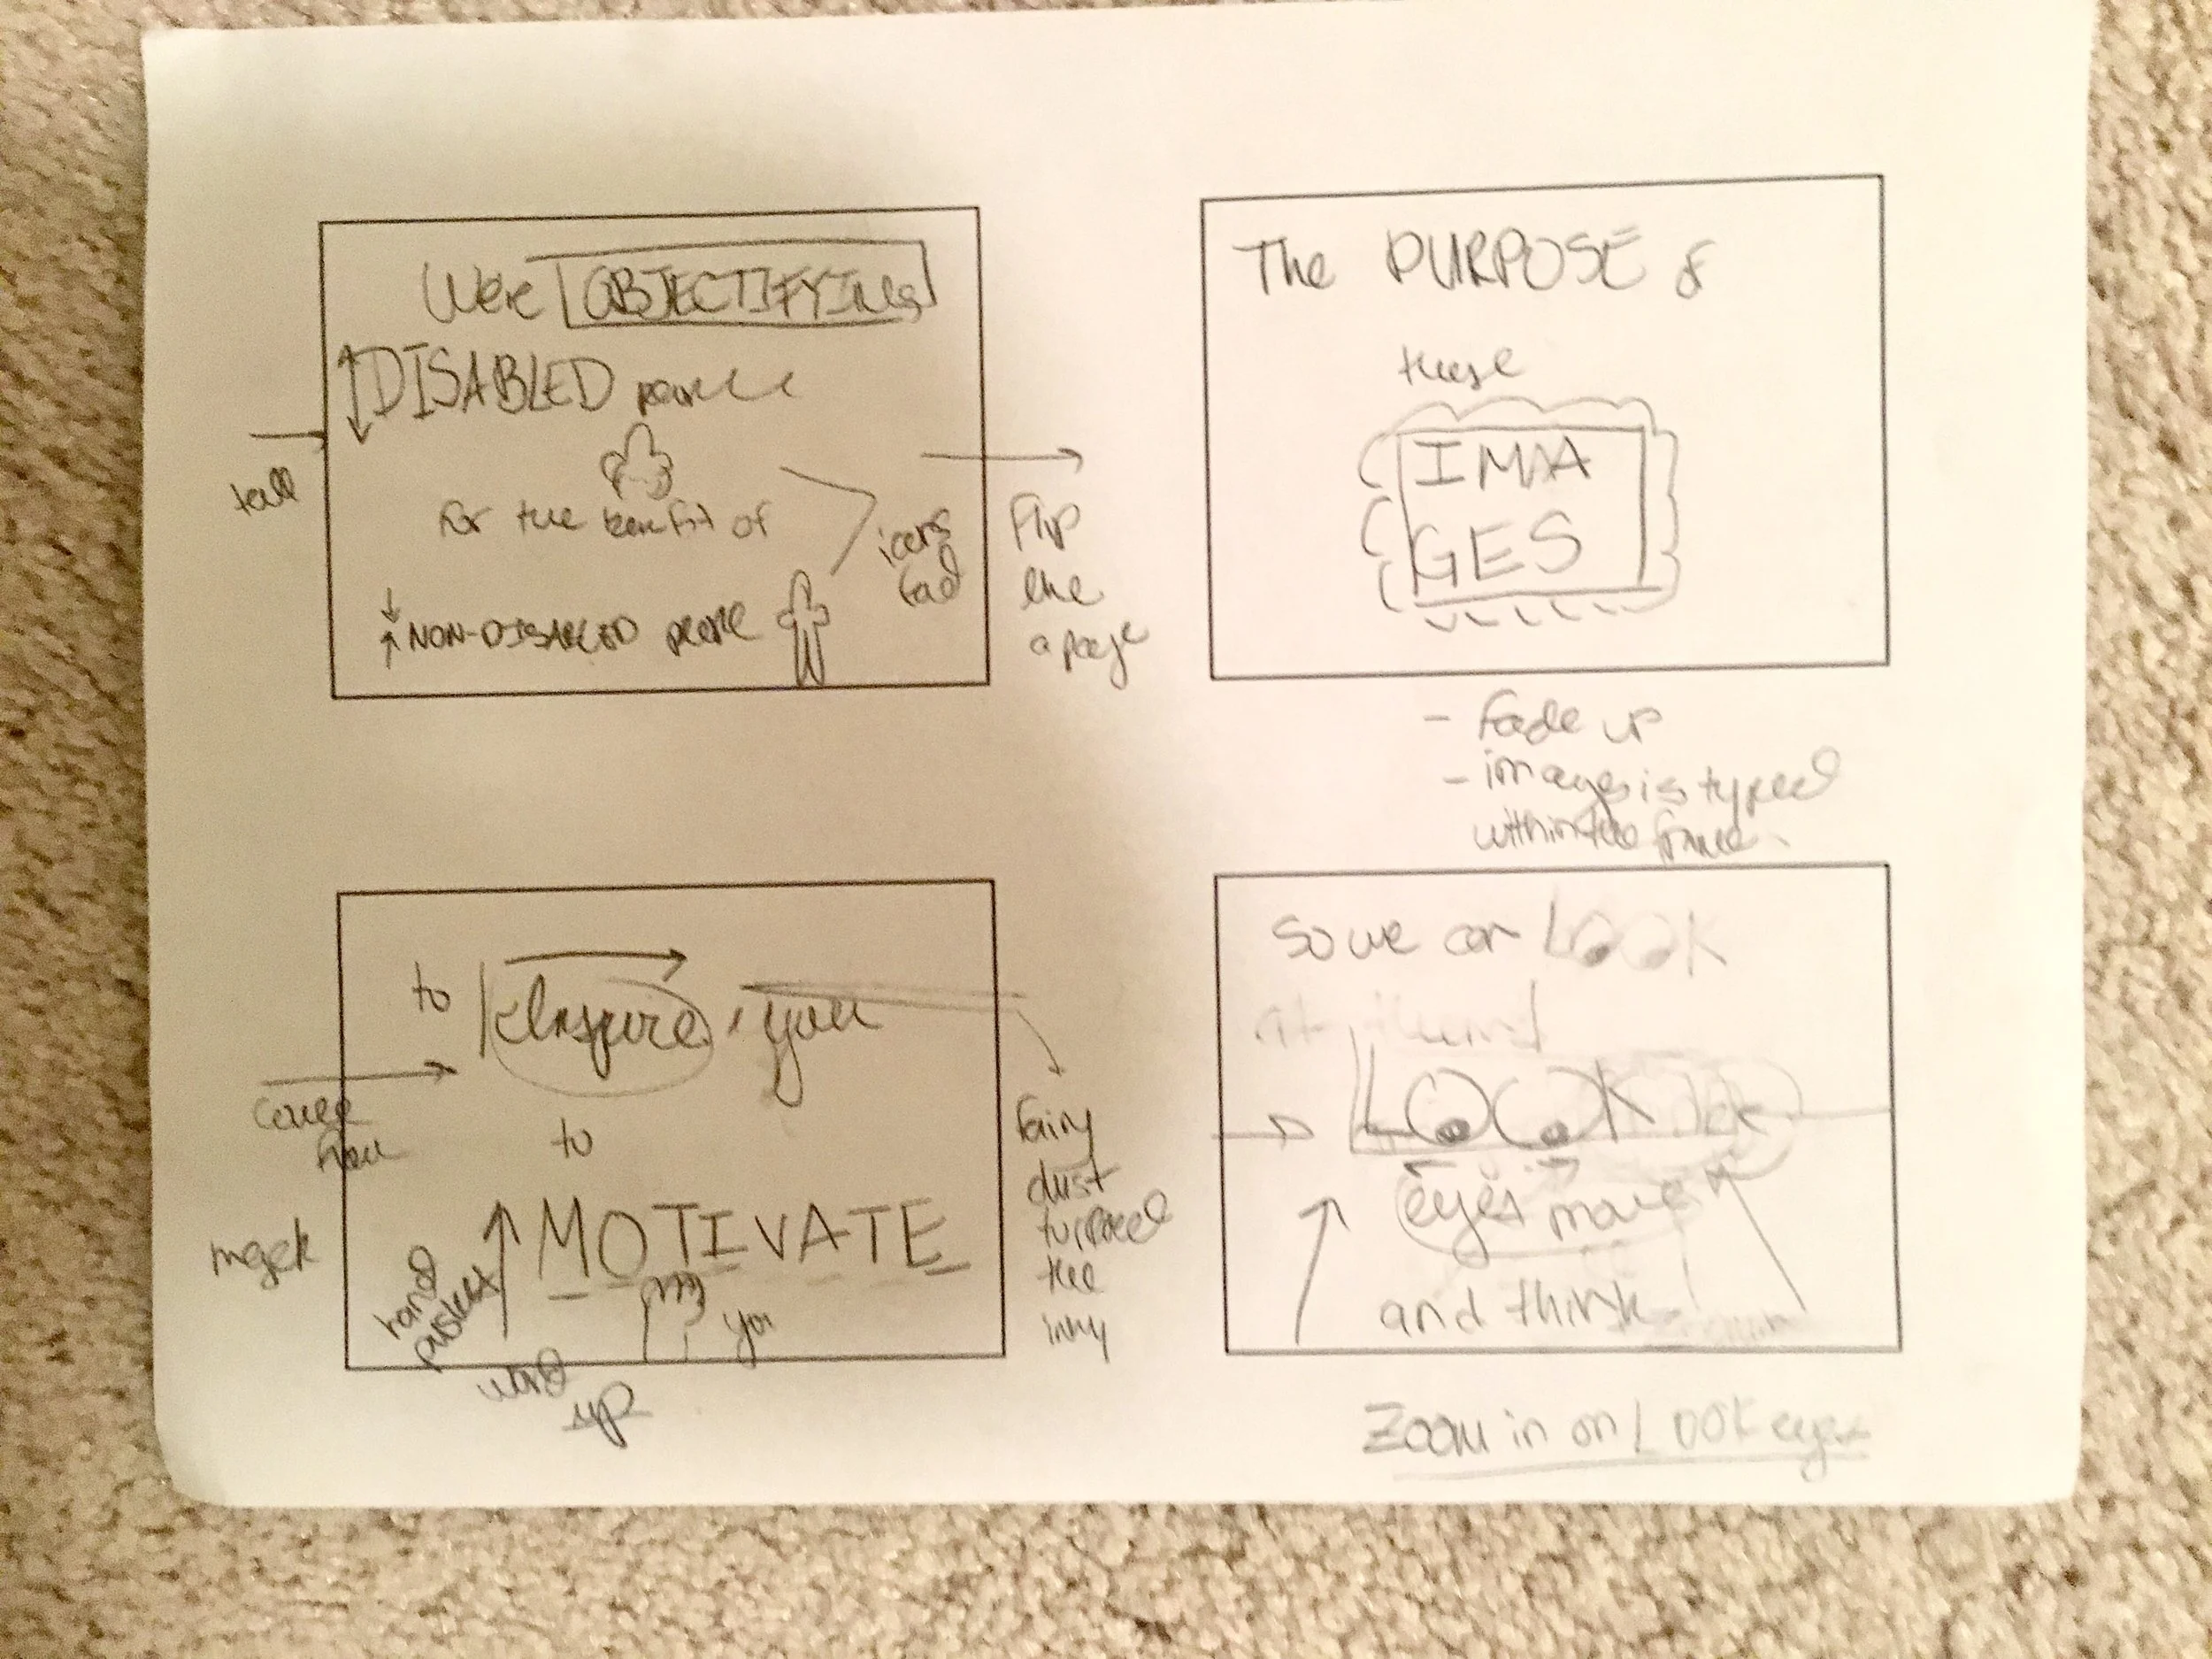 We're OBJECTIFYING
DISABLED people
for the benefit of
NON-DISABLED people
tall
icons
Flip
like
a page
The PURPOSE of
these
IMA
GES
- Fade up
- images is typed
within the frame.
to Inspire you
to
MOTIVATE
you
hand
pushes
word
up
fairy
dust
the
So we can LOOK
LOOK
eyes move
and think
Zoom in on LOOK eyes